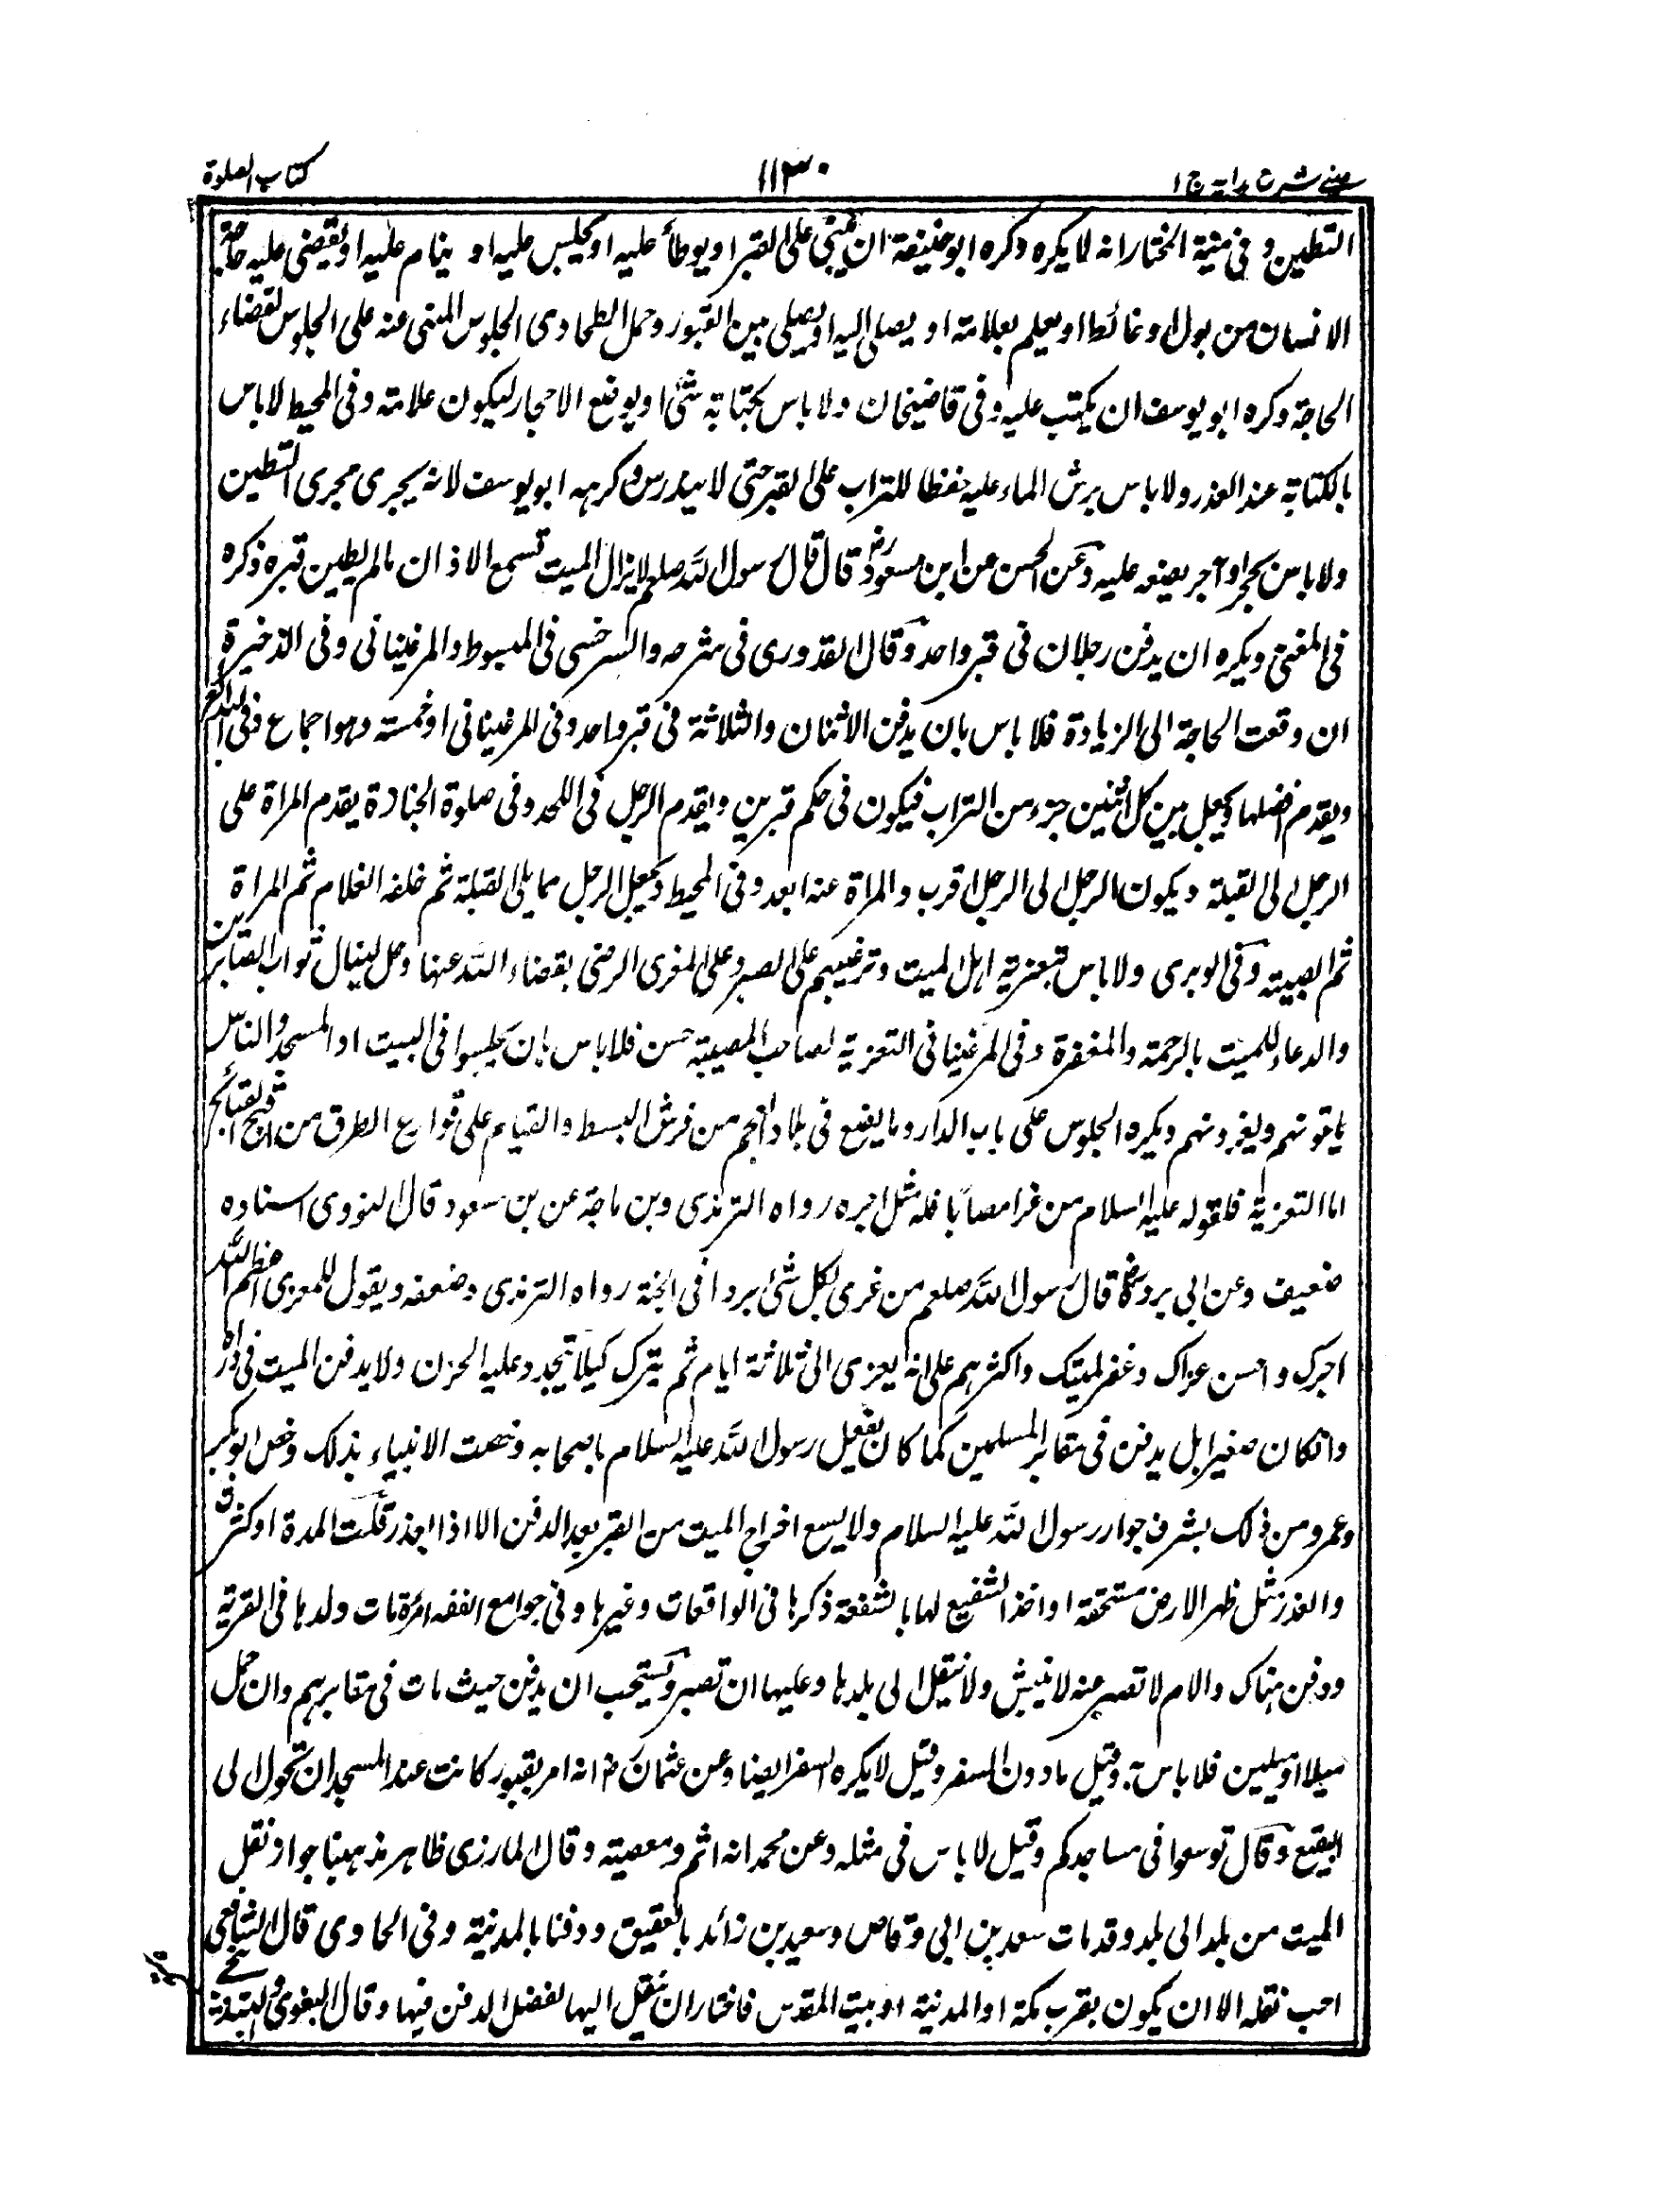 عینے شرح ہدایہ ج ۱
۱۱۳۰
کتاب الصلوة
التطيين وفى منية المختار انه لا يكره وكره ابوحنيفة ان يبنى على القبر او يوطأ عليه او يجلس عليه او ينام عليه او يقضى عليه حاجة
الانسان من بول او غائط او يعلم بعلامة او يصلى اليه او يصلى بين القبور وحمل الطحاوى الجلوس المنهى عنه على الجلوس لقضاء
الحاجة وكره ابو يوسف ان يكتب عليه وفى قاضيخان ولا باس بكتابة شئ او يوضع الاحجار ليكون علامة وفى المحيط لا باس
بالكتابة عند العذر ولا باس برش الماء عليه حفظا للتراب على القبر حتى لا يندرس وكرهه ابو يوسف لانه يجرى مجرى التطيين
ولا باس بحجر او آجر يضعه عليه وعن الحسن عن ابن مسعود رض قال قال رسول الله صلعم لا يزال الميت تسمع الاذان مالم يطين قبره ذكره
فى المغنى ويكره ان يدفن رجلان فى قبر واحد وقال القدورى فى شرحه والسرخسى فى المبسوط والمرغينانى وفى الذخيرة
ان وقعت الحاجة الى الزيادة فلا باس بان يدفن الاثنان والثلاثة فى قبر واحد وفى المرغينانى او خمسة وهو اجماع وفى البدائع
ويقدم افضلها ويجعل بين كل اثنين جزء من التراب فيكون فى حكم قبرين ويقدم الرجل فى اللحد وفى صلوة الجنازة يقدم المراة على
الرجل الى القبلة ويكون الرجل الى الرجل اقرب والمراة عنه ابعد وفى المحيط ويجعل الرجل مما يلى القبلة ثم خلفه الغلام ثم المراة
ثم الصبية وفى الوبرى ولا باس بتعزية اهل الميت وترغيبهم على الصبر وعلى المعزى الرضى بقضاء الله عنها وصل لينال ثواب الصابرين
والدعاء للميت بالرحمة والمغفرة وفى المرغينانى التعزية لصاحب المصيبة حسن فلا باس بان يجلسوا فى البيت او المسجد والناس
ياتونهم ويعزونهم ويكره الجلوس على باب الدار وما يضع فى بلاد العجم من فرش البسط والقيام على قوارع الطرق من اقبح القبائح
اما التعزية فلقوله عليه السلام من عزا مصابا فله مثل اجره رواه الترمذى وبن ماجة عن بن مسعود قال النووى اسناده
ضعيف وعن ابى بردة رض قال رسول الله صلعم من عزى لكل شئ بردا فى الجنة رواه الترمذى وضعفه ويقول للمعزى اعظم الله
اجرك واحسن عزاك وغفر لميتك واكثرهم على انه يعزى الى ثلاثة ايام ثم يترك كيلا يتجدد عليه الحزن ولا يدفن الميت فى داره
وانكان صغيرا بل يدفن فى مقابر المسلمين كما كان يفعل رسول الله عليه السلام باصحابه وخصت الانبياء بذلك وخص ابوبكر
وعمر ومن ذلك بشرف جوار رسول الله عليه السلام ولا يسع اخراج الميت من القبر بعد الدفن الا اذا بعذر قلت المدة او كثرت
والعذر مثل ظهر الارض مستحقة او اخذ الشفيع لها بالشفعة ذكرها فى الواقعات وغيرها وفى جوامع الفقه امرة مات ولدها فى القرية
ودفن هناك والام لا تصبر عنه لا ينبش ولا ينقل الى بلدها وعليها ان تصبر ويستحب ان يدفن حيث مات فى مقابرهم وان حمل
ميلا او ميلين فلا باس به وقيل مادون السفر وقيل لا يكره السفر ايضا وعن عثمان رض انه امر بقبور كانت عند المسجد ان تحول الى
البقيع وقال توسعوا فى مساجدكم وقيل لا باس فى مثله وعن محمد انه اثم ومعصية وقال المارزى ظاهر مذهبنا جواز نقل
الميت من بلد الى بلد وقد مات سعد بن ابى وقاص وسعيد بن زائد بالعقيق ودفنا بالمدينة وفى الحاوى قال الشافعى
احب نقله الا ان يكون بقرب مكة او المدينة او بيت المقدس فاختار ان ينقل اليها لفضل الدفن فيها وقال البغوى